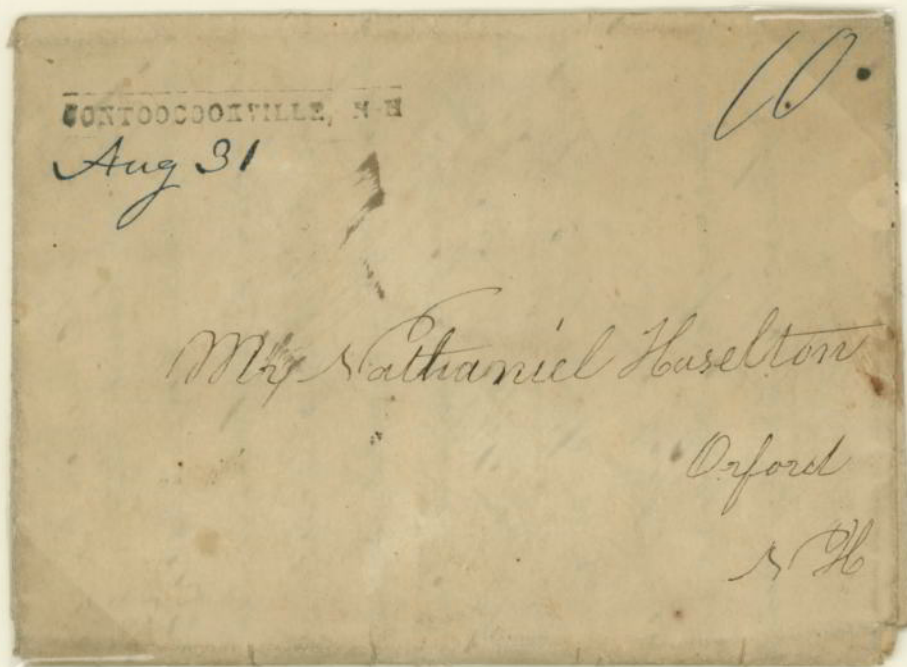 CONTOOCOOKVILLE, N H
Aug 31
10.
Mr Nathaniel Haselton
Orford
N H